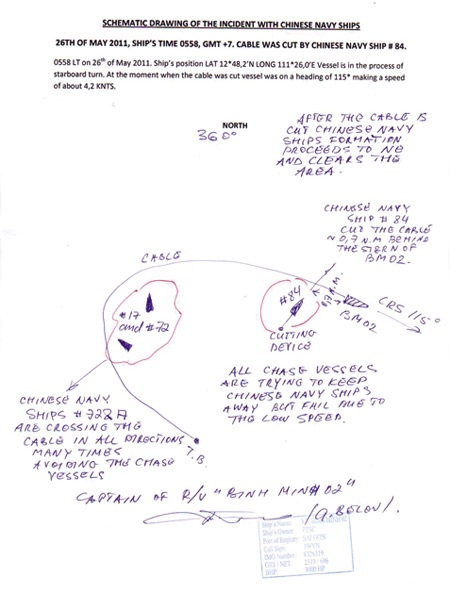 SCHEMATIC DRAWING OF THE INCIDENT WITH CHINESE NAVY SHIPS
26TH OF MAY 2011, SHIP'S TIME 0558, GMT +7. CABLE WAS CUT BY CHINESE NAVY SHIP # 84.
0558 LT on 26th of May 2011. Ship's position LAT 12*48,2'N LONG 111*26,0'E Vessel is in the process of
starboard turn. At the moment when the cable was cut vessel was on a heading of 115* making a speed
of about 4,2 KNTS.
NORTH
360°
AFTER THE CABLE IS
CUT CHINESE NAVY
SHIPS FORMATION
PROCEEDS TO NE
AND CLEARS THE
AREA.
CHINESE NAVY
SHIP # 84
CUT THE CABLE
~ 0,7 N.M BEHIND
THE STERN OF
BM02.
CABLE
#17
and #72
#84
0,7 N.M.
BM02
CRS 115°
CUTTING
DEVICE
ALL CHASE VESSELS
ARE TRYING TO KEEP
CHINESE NAVY SHIPS
AWAY BUT FAIL DUE TO
THE LOW SPEED.
CHINESE NAVY
SHIPS
ARE CROSSING THE
CABLE IN ALL DIRECTIONS
MANY TIMES
AVOIDING THE CHASE
VESSELS
T.B.
CAPTAIN OF R/V "BINH MINH 02"
/A. BELOV/.
Ship's Name
Ship's Owner: PTSC
Port of Registry: SAI GON
Call Sign:
IMO Number:
GRT / NRT:
BHP: 3000 HP